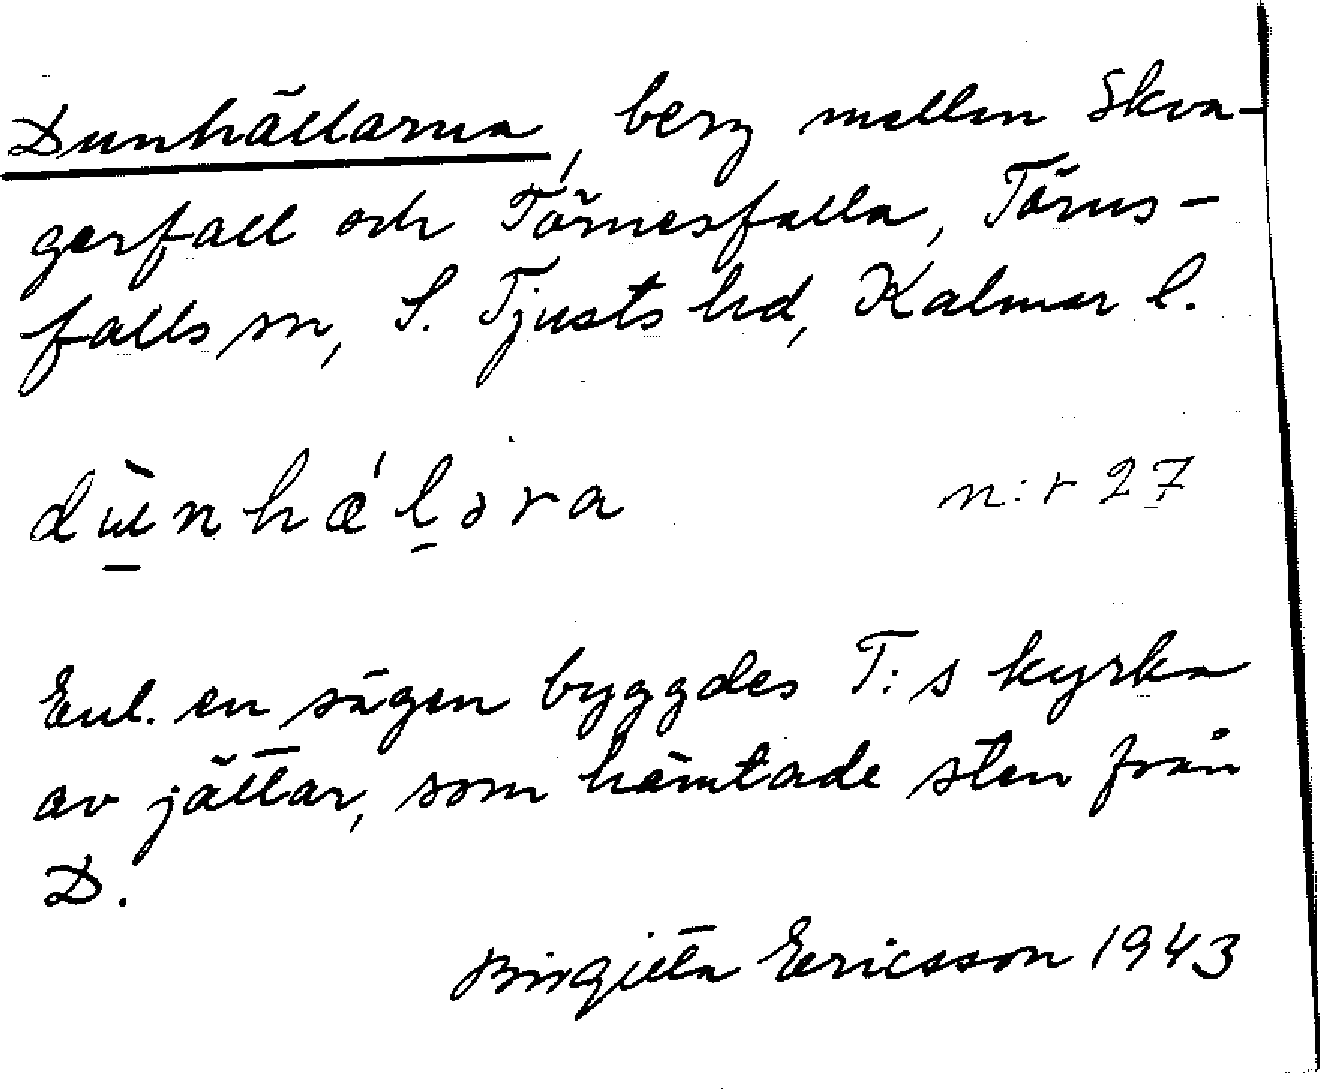 Dunhällarna, berg mellan Skva-
gerfall och Törnesfalla, Törns-
falls sn, S. Tjusts hd, Kalmar l.
n:r 27
Enl. en sägen byggdes T:s kyrka
av jättar, som hämtade sten från
D.
Birgitta Ericsson 1943